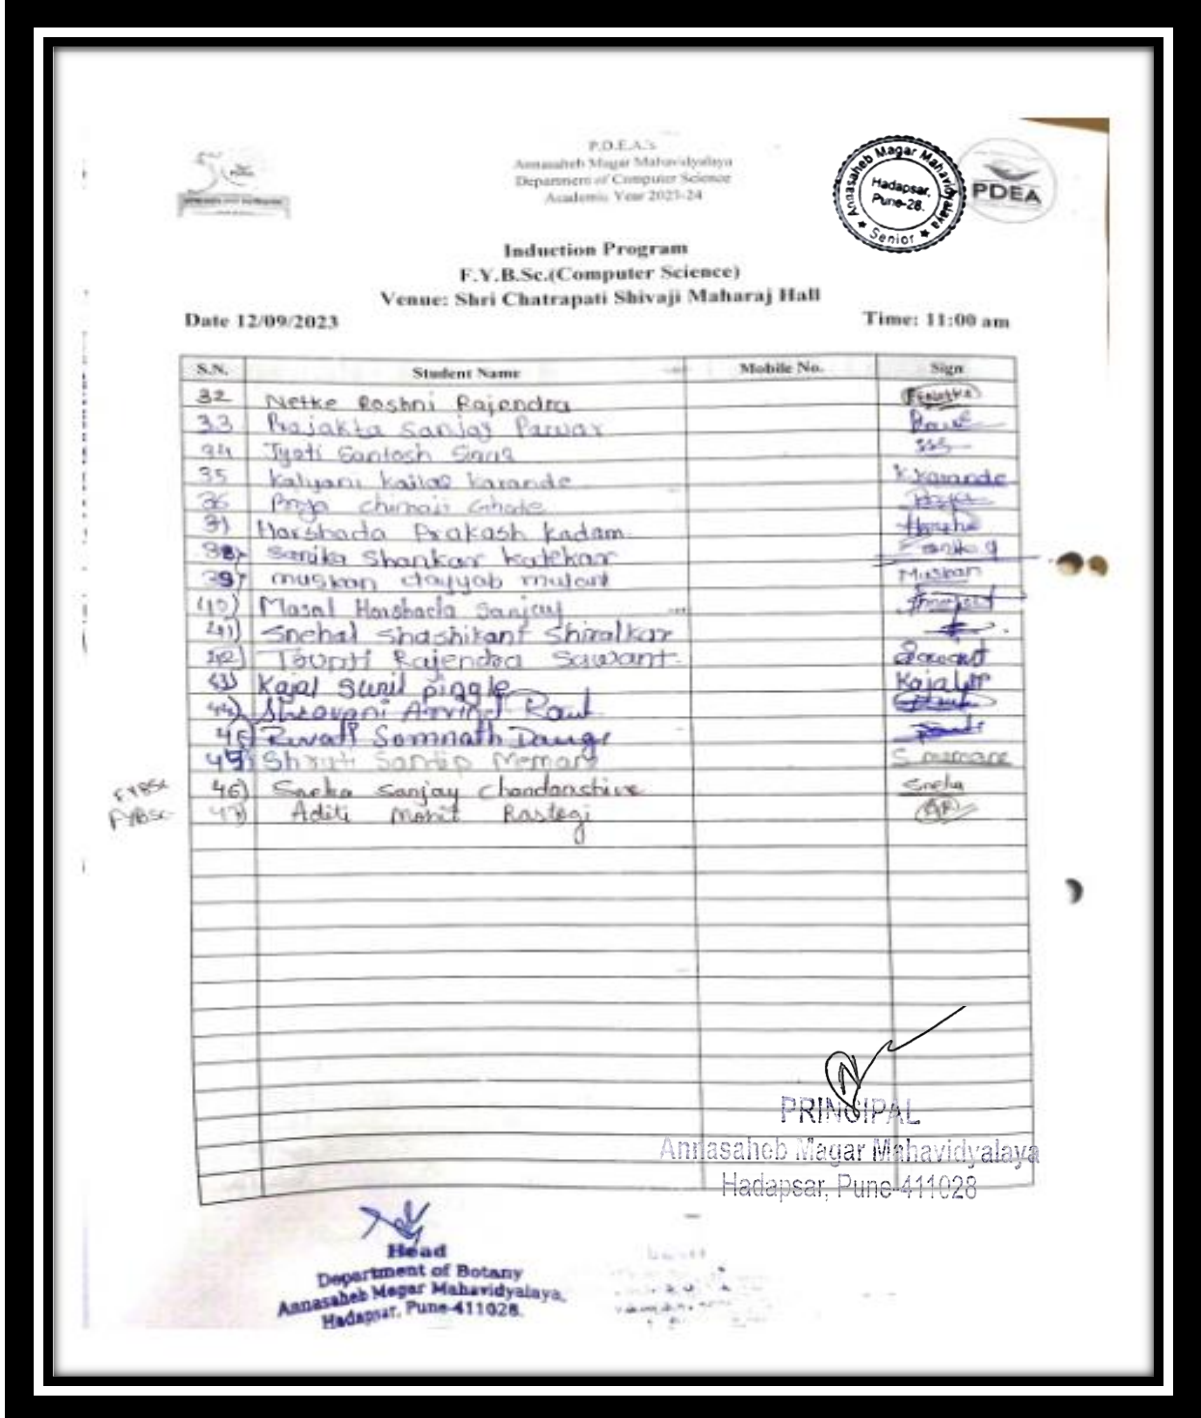 P.D.E.A.'s
Annasaheb Magar Mahavidyalaya
Department of Computer Science
Academic Year 2023-24
Annasaheb Magar Mahavidyalaya
Hadapsar,
Pune-28.
★ Senior ★
PDEA
Induction Program
F.Y.B.Sc.(Computer Science)
Venue: Shri Chatrapati Shivaji Maharaj Hall
Date 12/09/2023 Time: 11:00 am
S.N. Student Name Mobile No. Sign
32 Netke Roshni Rajendra
33 Prajakta Sanjay Pawar
34 Jyoti Santosh
35 Kalyani Kailas Karande K.Karande
36 Priya Chimaji Ghate
37) Harshada Prakash Kadam
38) Sanika Shankar Katekar
39) muskan tayyab mulani Muskan
40) Masal Harshada Sanjay
41) Snehal Shashikant Shiralkar
42) Trupti Rajendra Sawant Sawant
43) Kajal Sunil pingle Kajal
44) Shravani Arvind Raut
45) Revati Somnath Dange
45) Shruti Sandip Memane S memane
FYBSc 46) Sneha Sanjay Chandanshive Sneha
FYBSc 47) Aditi Mohit Rastogi AR
PRINCIPAL
Annasaheb Magar Mahavidyalaya
Hadapsar, Pune-411028
Head
Department of Botany
Annasaheb Magar Mahavidyalaya,
Hadapsar, Pune-411028.